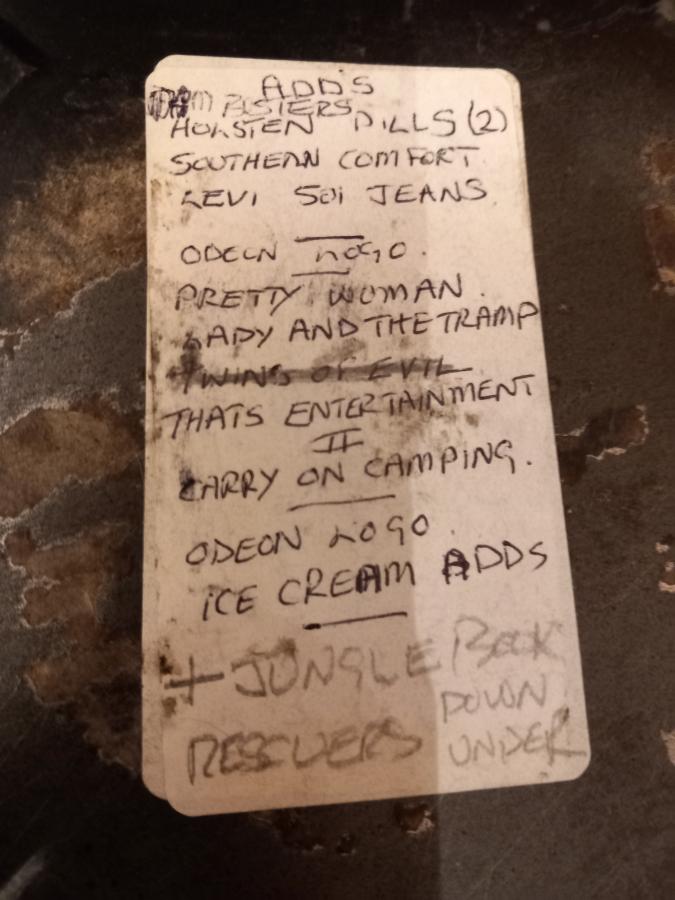 ADDS
DAM BUSTERS
HOLSTEN PILLS (2)
SOUTHERN COMFORT
LEVI 501 JEANS
ODEON LOGO.
PRETTY WOMAN.
LADY AND THE TRAMP
TWINS OF EVIL
THATS ENTERTAINMENT
II
CARRY ON CAMPING.
ODEON LOGO.
ICE CREAM ADDS
+ JUNGLE BOOK
RESCUERS DOWN UNDER